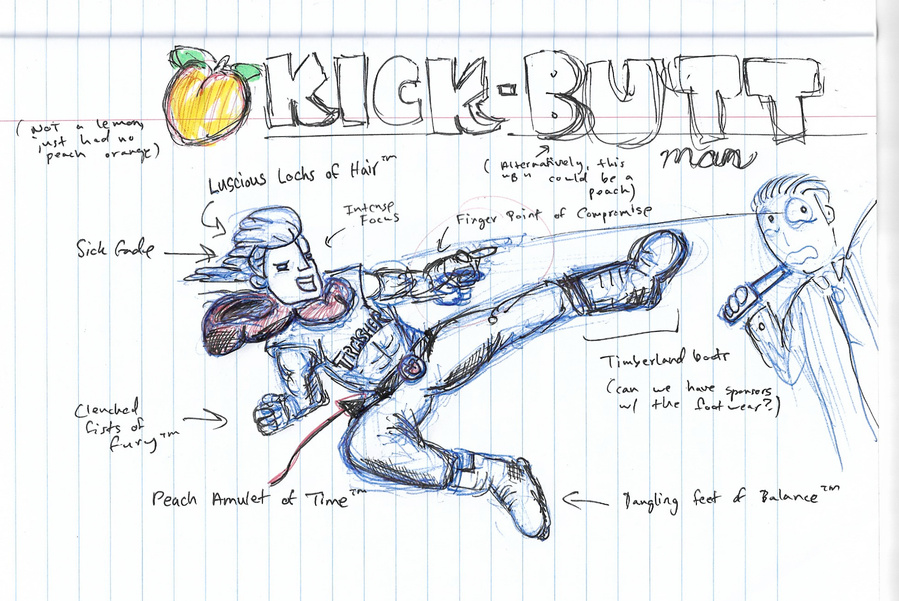 KICK-BUTT
man
(NOT a lemon,
just had no
peach orange)
(Alternatively, this
"B" could be a
peach)
Luscious Locks of Hair™
Intense
Focus
Finger Point of Compromise
Sick Fade
THRASHER
Timberland boots
(can we have sponsors
w/ the footwear?)
Clenched
fists of
fury™
Peach Amulet of Time™
Dangling feet of Balance™